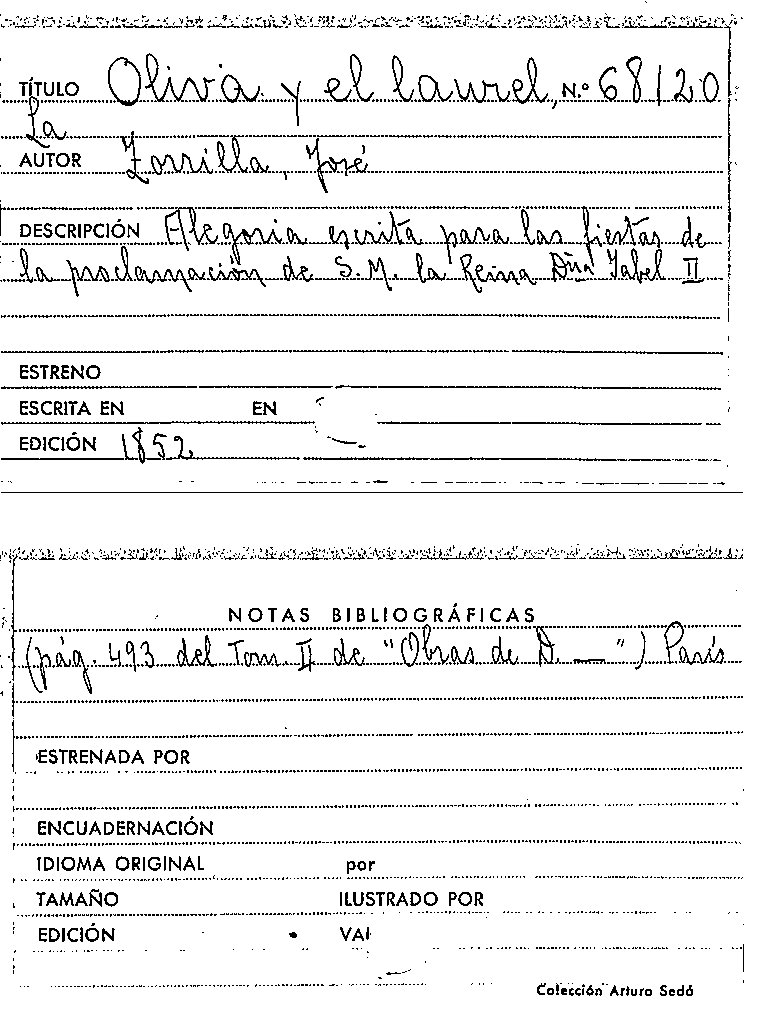 TÍTULO Oliva y el laurel, N.º 68120
La
AUTOR Zorrilla, José
DESCRIPCIÓN Alegoria escrita para las fiestas de
la proclamación de S.M. la Reina Dña Isabel II
ESTRENO
ESCRITA EN EN
EDICIÓN 1852
NOTAS BIBLIOGRÁFICAS
(pág. 493 del Tom. II de "Obras de D. — ") París
ESTRENADA POR
ENCUADERNACIÓN
IDIOMA ORIGINAL por
TAMAÑO ILUSTRADO POR
EDICIÓN VAI
Colección Arturo Sedó